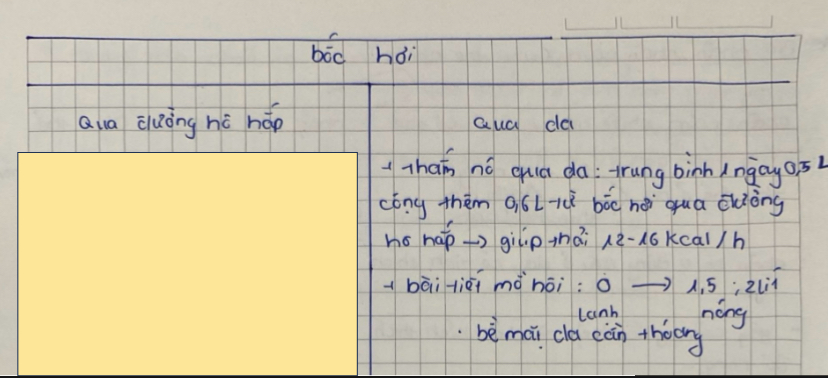 bốc hơi
Qua đường hô hấp
Qua da
+ thấm nc qua da: trung bình 1 ngày 0,5L
cộng thêm 0,6L từ bốc hơi qua đường
hô hấp → giúp thải 12-16 Kcal/h
+ bài tiết mồ hôi: 0 → 1,5; 2lit
lạnh nóng
. bề mặt da cần thoáng